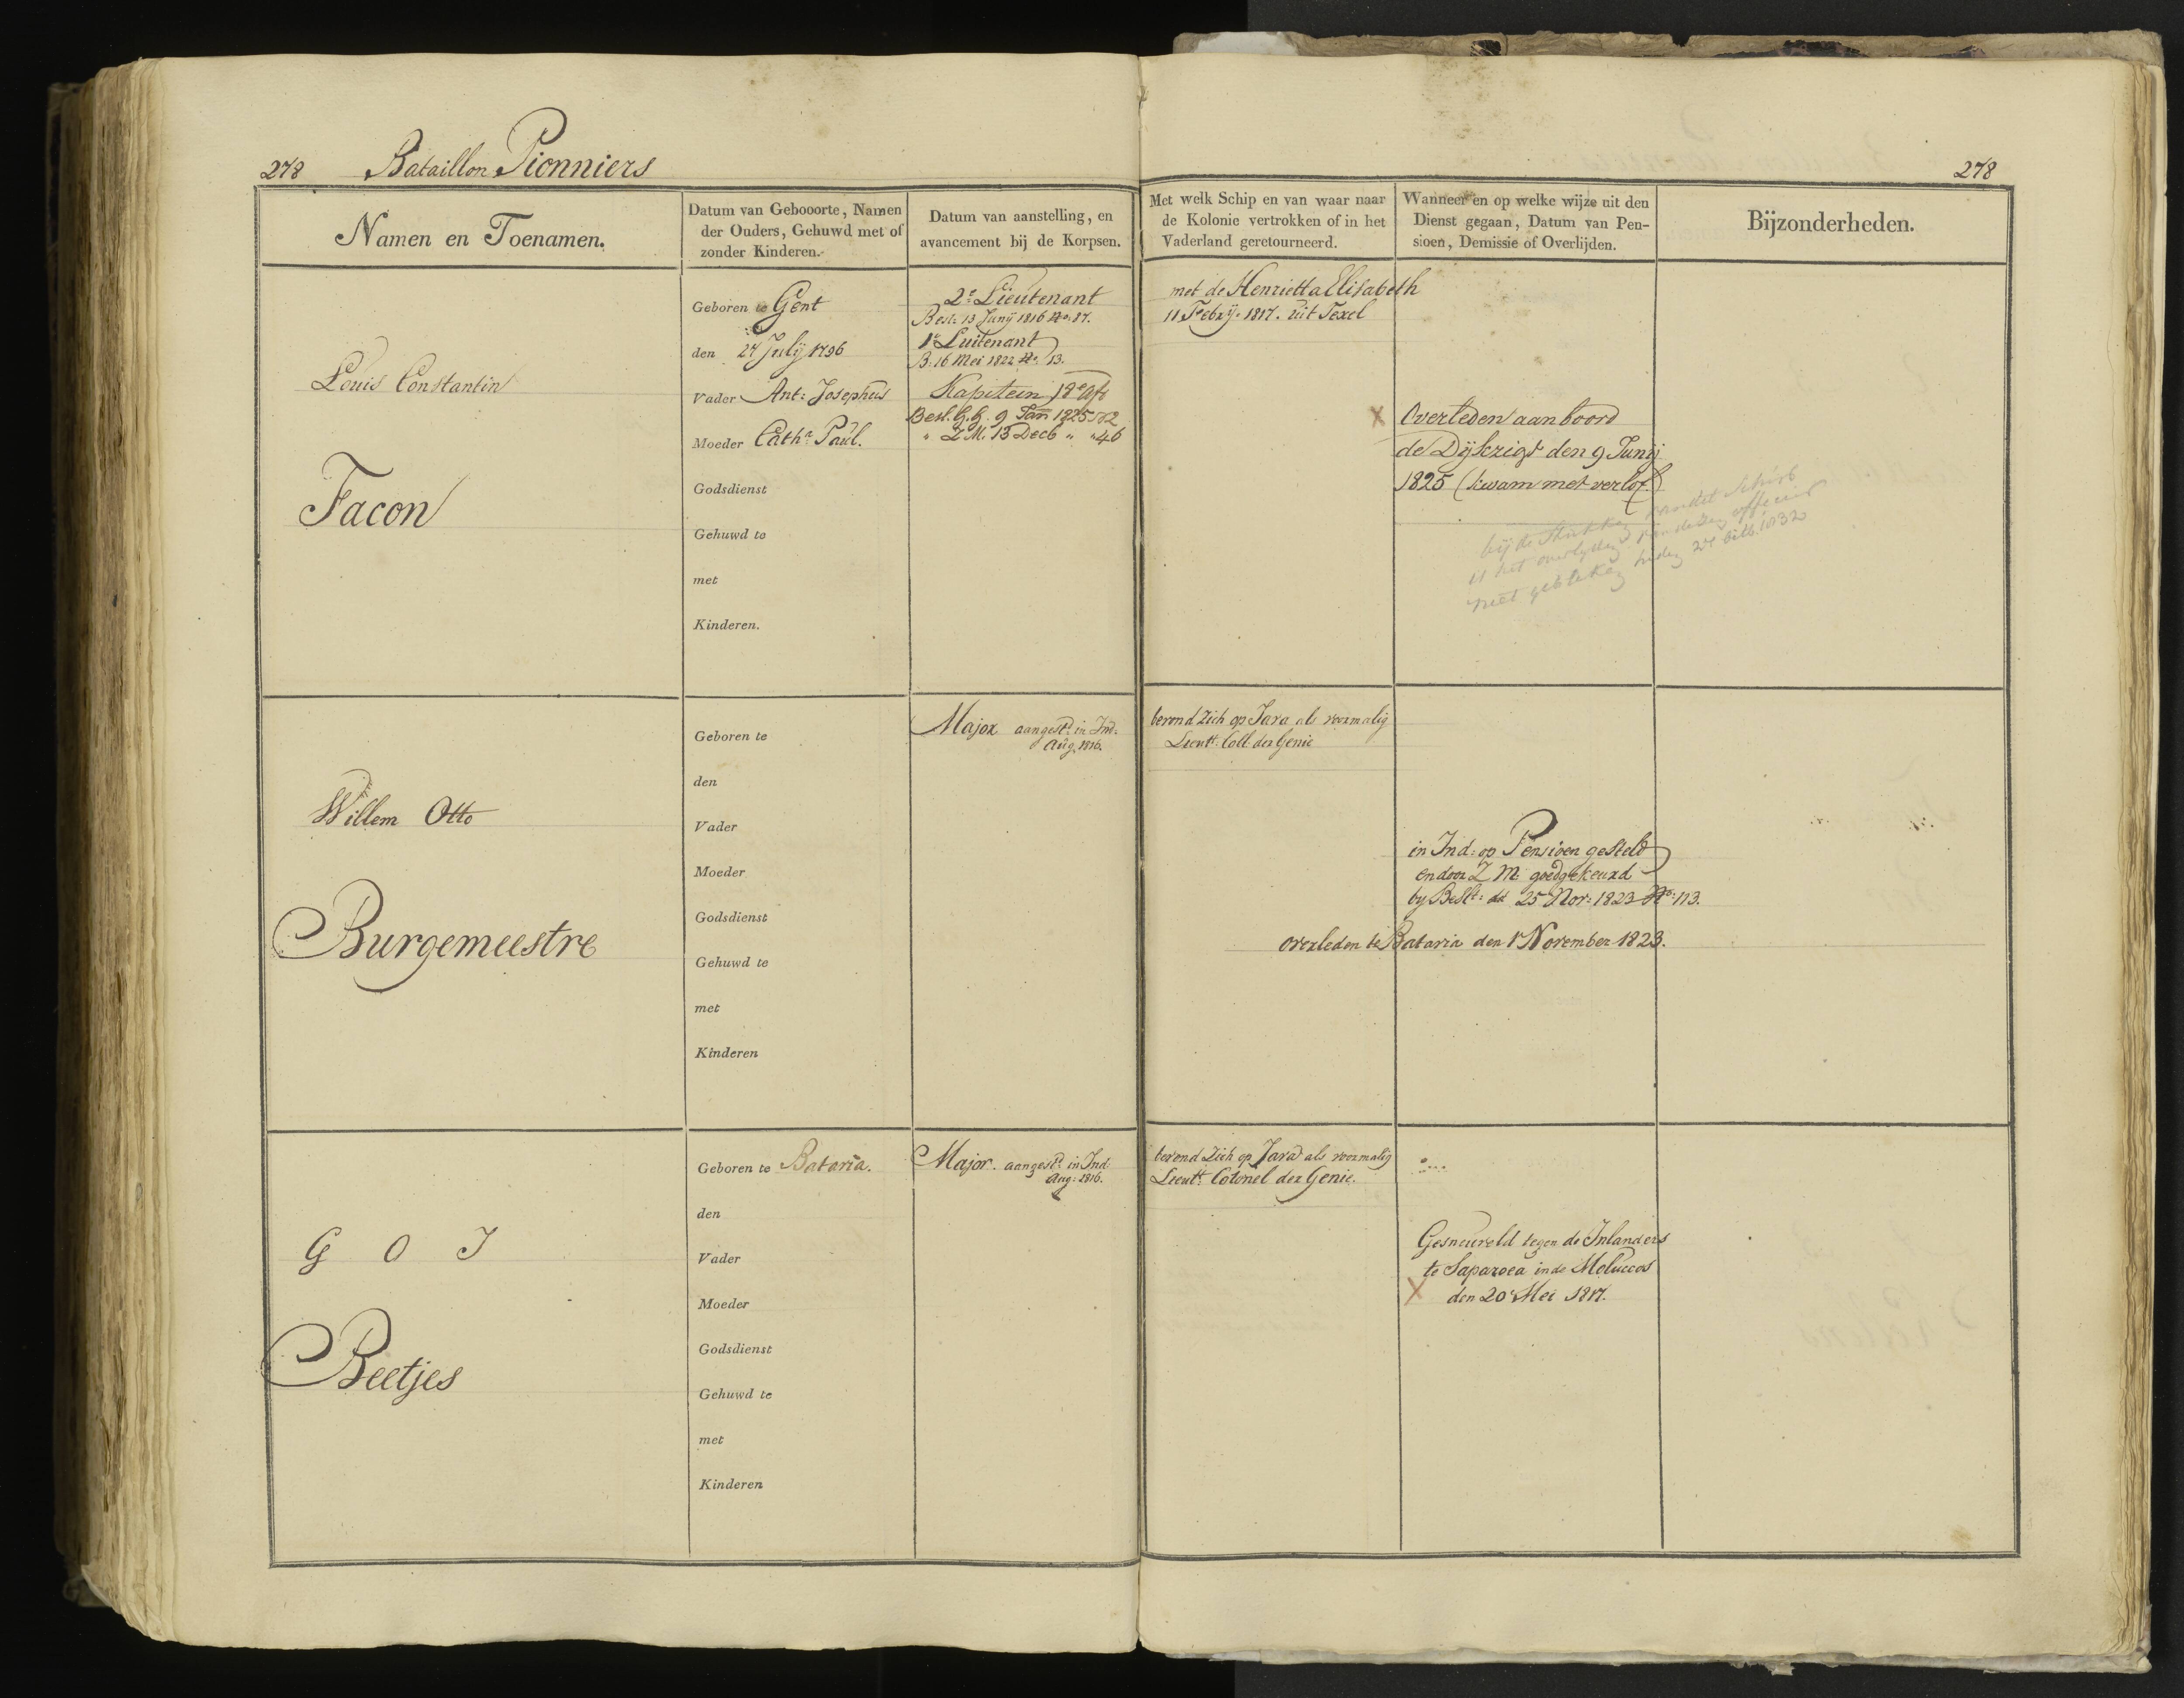 278 Bataillon Pionniers
278
Namen en Toenamen.
Datum van Gebooorte, Namen
der Ouders, Gehuwd met of
zonder Kinderen.
Datum van aanstelling, en
avancement bij de Korpsen.
Met welk Schip en van waar naar
de Kolonie vertrokken of in het
Vaderland geretourneerd.
Wanneer en op welke wijze uit den
Dienst gegaan, Datum van Pen-
sioen, Demissie of Overlijden.
Bijzonderheden.
Louis Constantin
Facon
Geboren te Gent
den 27 July 1796
Vader Ant: Josephus
Moeder Cath.a Paul.
Godsdienst
Gehuwd te
met
Kinderen.
2e Lieutenant
Besl: 13 Junij 1816 No. 87.
1e Luitenant
B. 16 Mei 1822 No. 13.
Kapitein 18e Afd
Besl. G.G. 9 Jan 1825 No 2
" Z.M. 13 Decb " " 46
met de Henrietta Elisabeth
11 Febrij. 1817. uit Texel
X Overleden aan boord
de Dijkzigt den 9 Junij
1825 (kwam met verlof)
bij de stukken van het Schip
is het overlyden van dezen officier
niet gebleken heden 24 1832
Willem Otto
Burgemeestre
Geboren te
den
Vader
Moeder
Godsdienst
Gehuwd te
met
Kinderen
Major aangest.d in Ind:
Aug. 1816.
bevond zich op Java als voormalig
Lieutt. Coll. der Genie
in Ind: op Pensioen gesteld
en door Z M. goedgekeurd
by Beslt: dd 25 Nov: 1823 No: 113.
overleden te Batavia den 1 November 1823.
G O J
Beetjes
Geboren te Batavia.
den
Vader
Moeder
Godsdienst
Gehuwd te
met
Kinderen
Major. aangest.d in Ind
Aug: 1816.
bevond zich op Java als voormalig
Lieutt. Colonel der Genie.
Gesneuveld tegen de Inlanders
te Saparoea in de Moluccos
X den 20 Mei 1817.